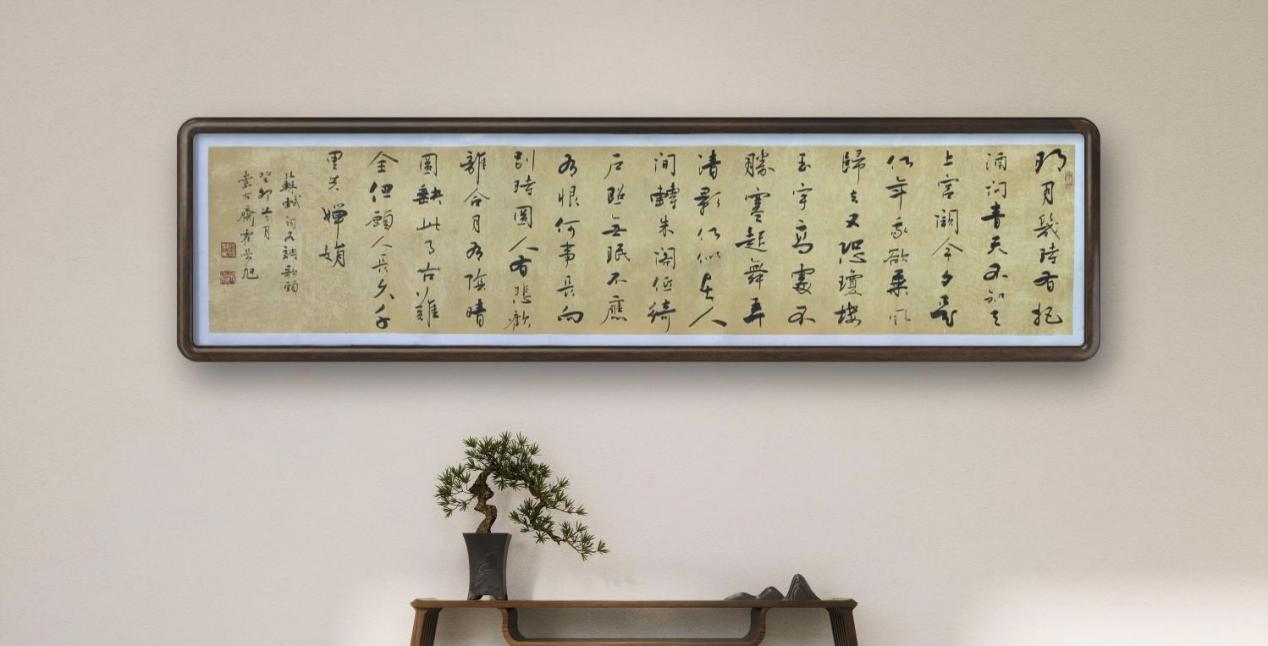 明月幾時有把
酒问青天不知天
上宫闕今夕是
何年我欲乘风
歸去又恐瓊楼
玉宇高處不
勝寒起舞弄
清影何似在人
间轉朱阁低綺
户照无眠不應
有恨何事長向
别時圆人有悲歡
離合月有陰晴
圆缺此事古難
全但願人長久千
里共嬋娟
蘇軾词水調歌頭
癸卯冬月
齋
旭